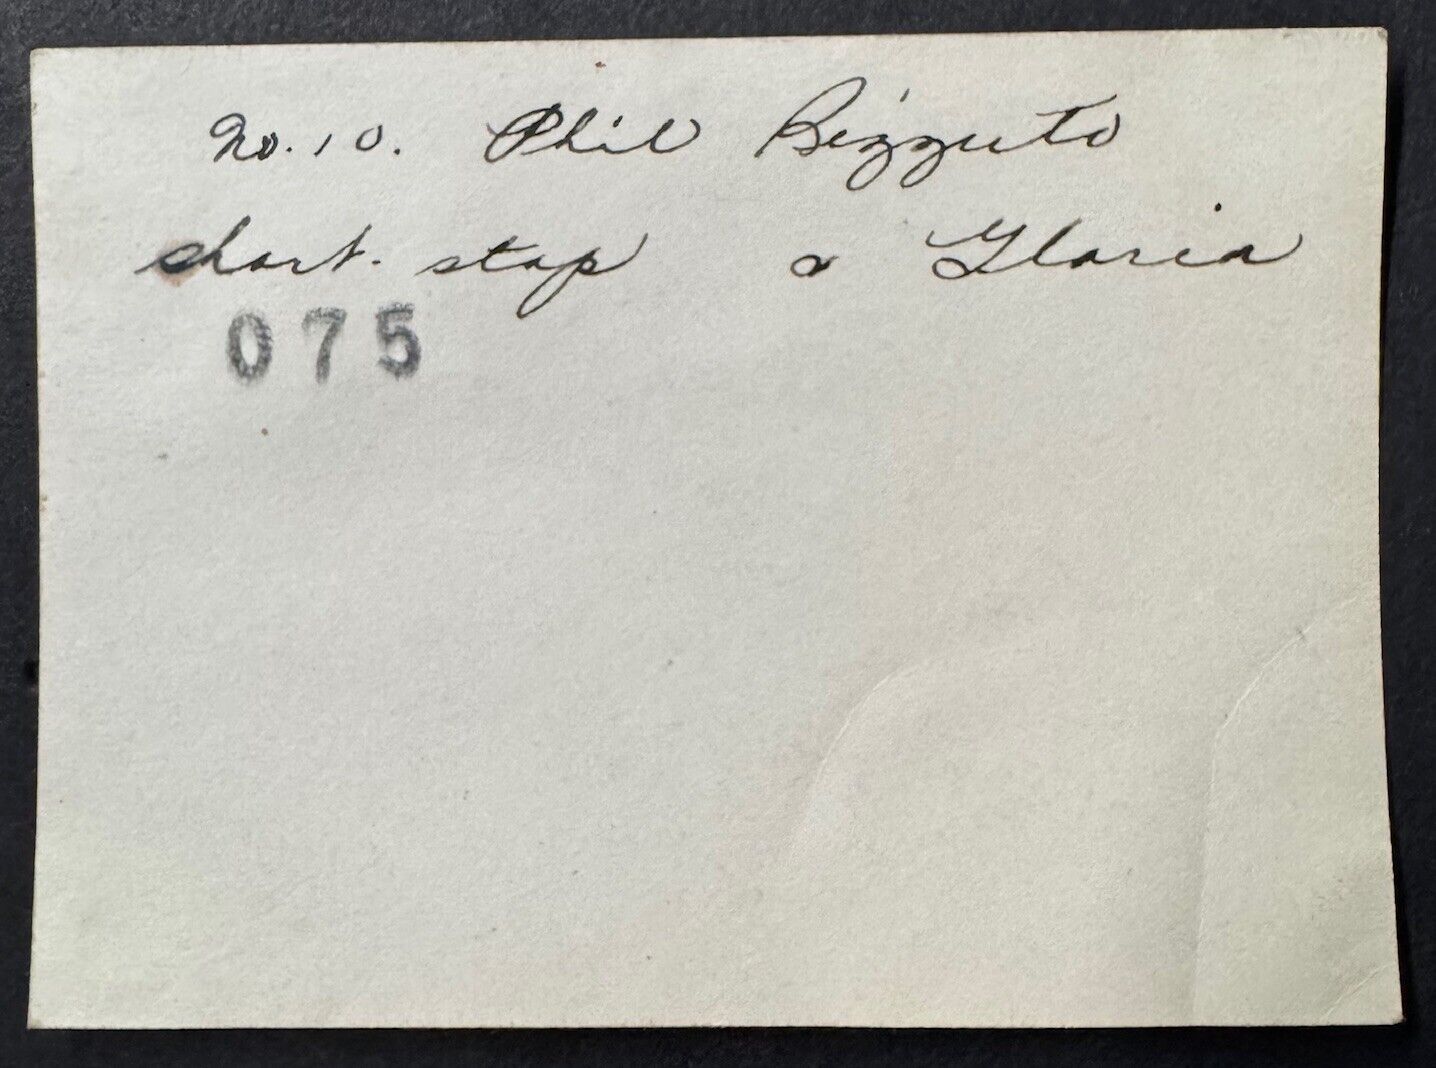 No. 10. Phil Rizzuto
short. stop & Gloria
075